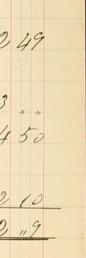 2 49
3 " "
4 50
2 10
2 " 9